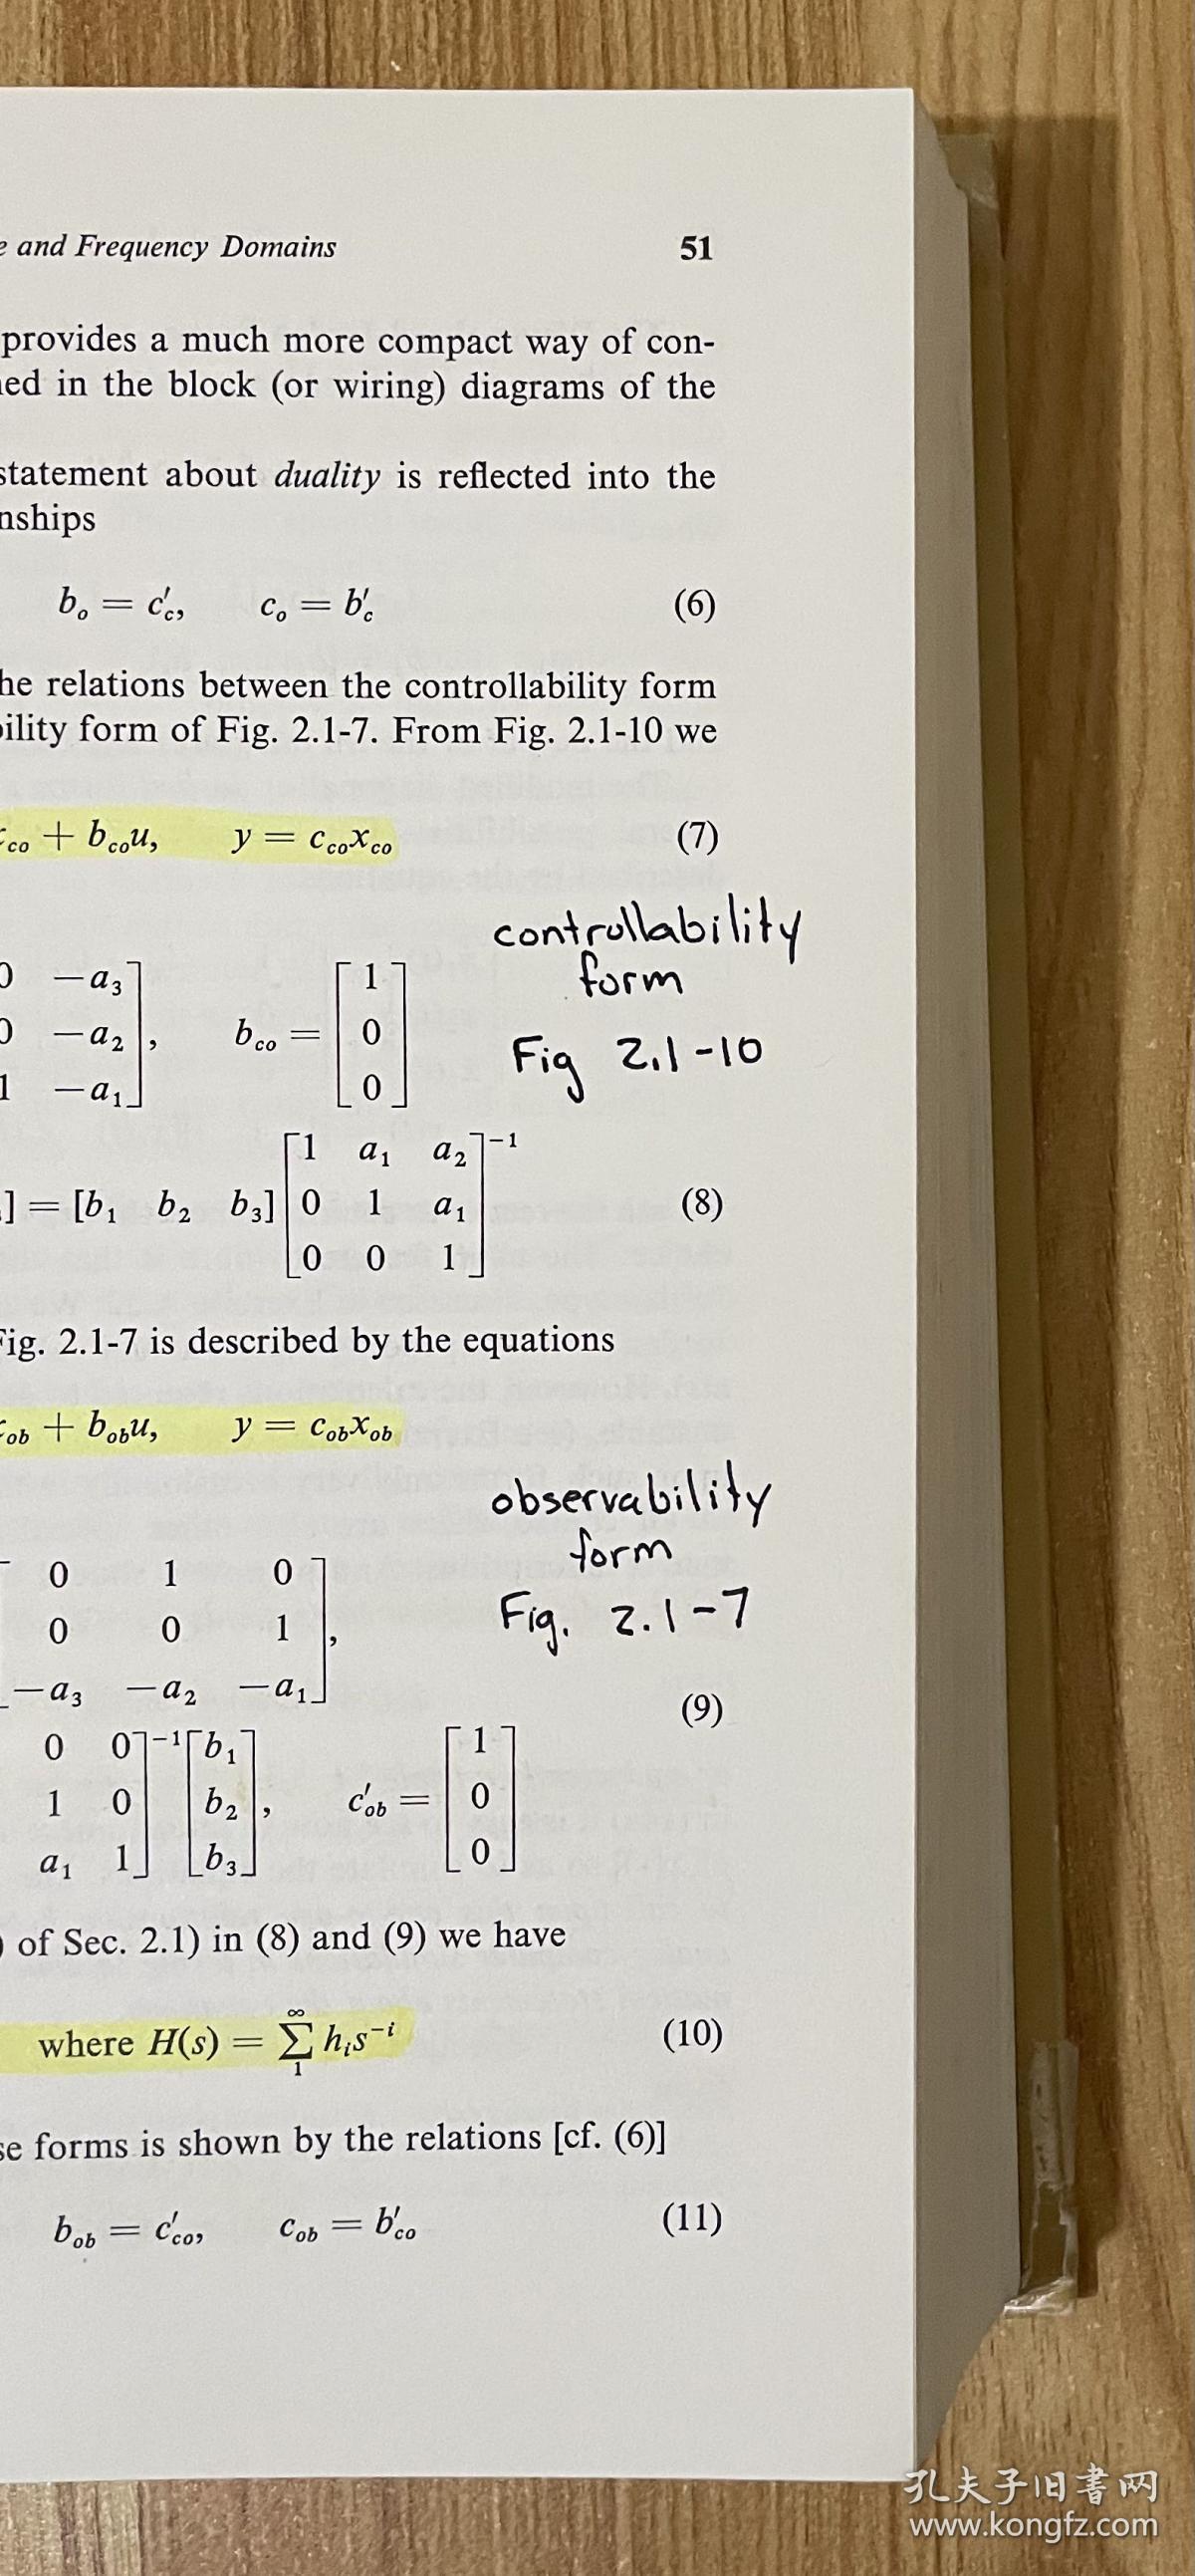 and Frequency Domains 51
provides a much more compact way of con-
in the block (or wiring) diagrams of the
statement about duality is reflected into the
b_o = c'_c, c_o = b'_c (6)
relations between the controllability form
form of Fig. 2.1-7. From Fig. 2.1-10 we
+ b_co u, y = c_co x_co (7)
controllability
form
Fig 2.1-10
0 −a_3 1
0 −a_2 , b_co = 0
1 −a_1 0
1 a_1 a_2 −1
] = [b_1 b_2 b_3] 0 1 a_1 (8)
0 0 1
Fig. 2.1-7 is described by the equations
+ b_ob u, y = c_ob x_ob
observability
form
Fig. 2.1-7
0 1 0
0 0 1 ,
−a_3 −a_2 −a_1
(9)
0 0 −1 b_1 1
1 0 b_2 , c'_ob = 0
a_1 1 b_3 0
of Sec. 2.1) in (8) and (9) we have
where H(s) = ∑_1^∞ h_i s^−i (10)
forms is shown by the relations [cf. (6)]
b_ob = c'_co, c_ob = b'_co (11)
孔夫子旧書网
www.kongfz.com